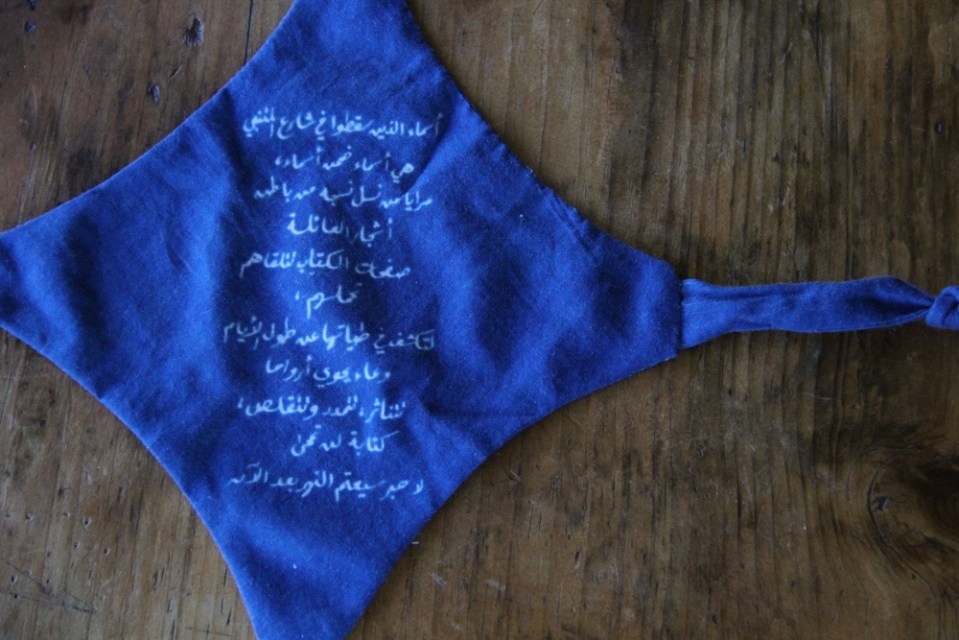 أسماء الذين سقطوا في شارع المتنبي
هي أسماء ضمن أسماء،
مرايا من نسل نسيه من باطن
أشجار العائلة
صفحات الكتاب لتلقاهم
تحاسبهم،
لتكشف في طياتها عن طول الأيام
وعاء يحوي أرواحا
لتتناثر، لتتمدد وتتقلص،
كتابة لن تمحى
لا حبر سيعتم النهر بعد الآن